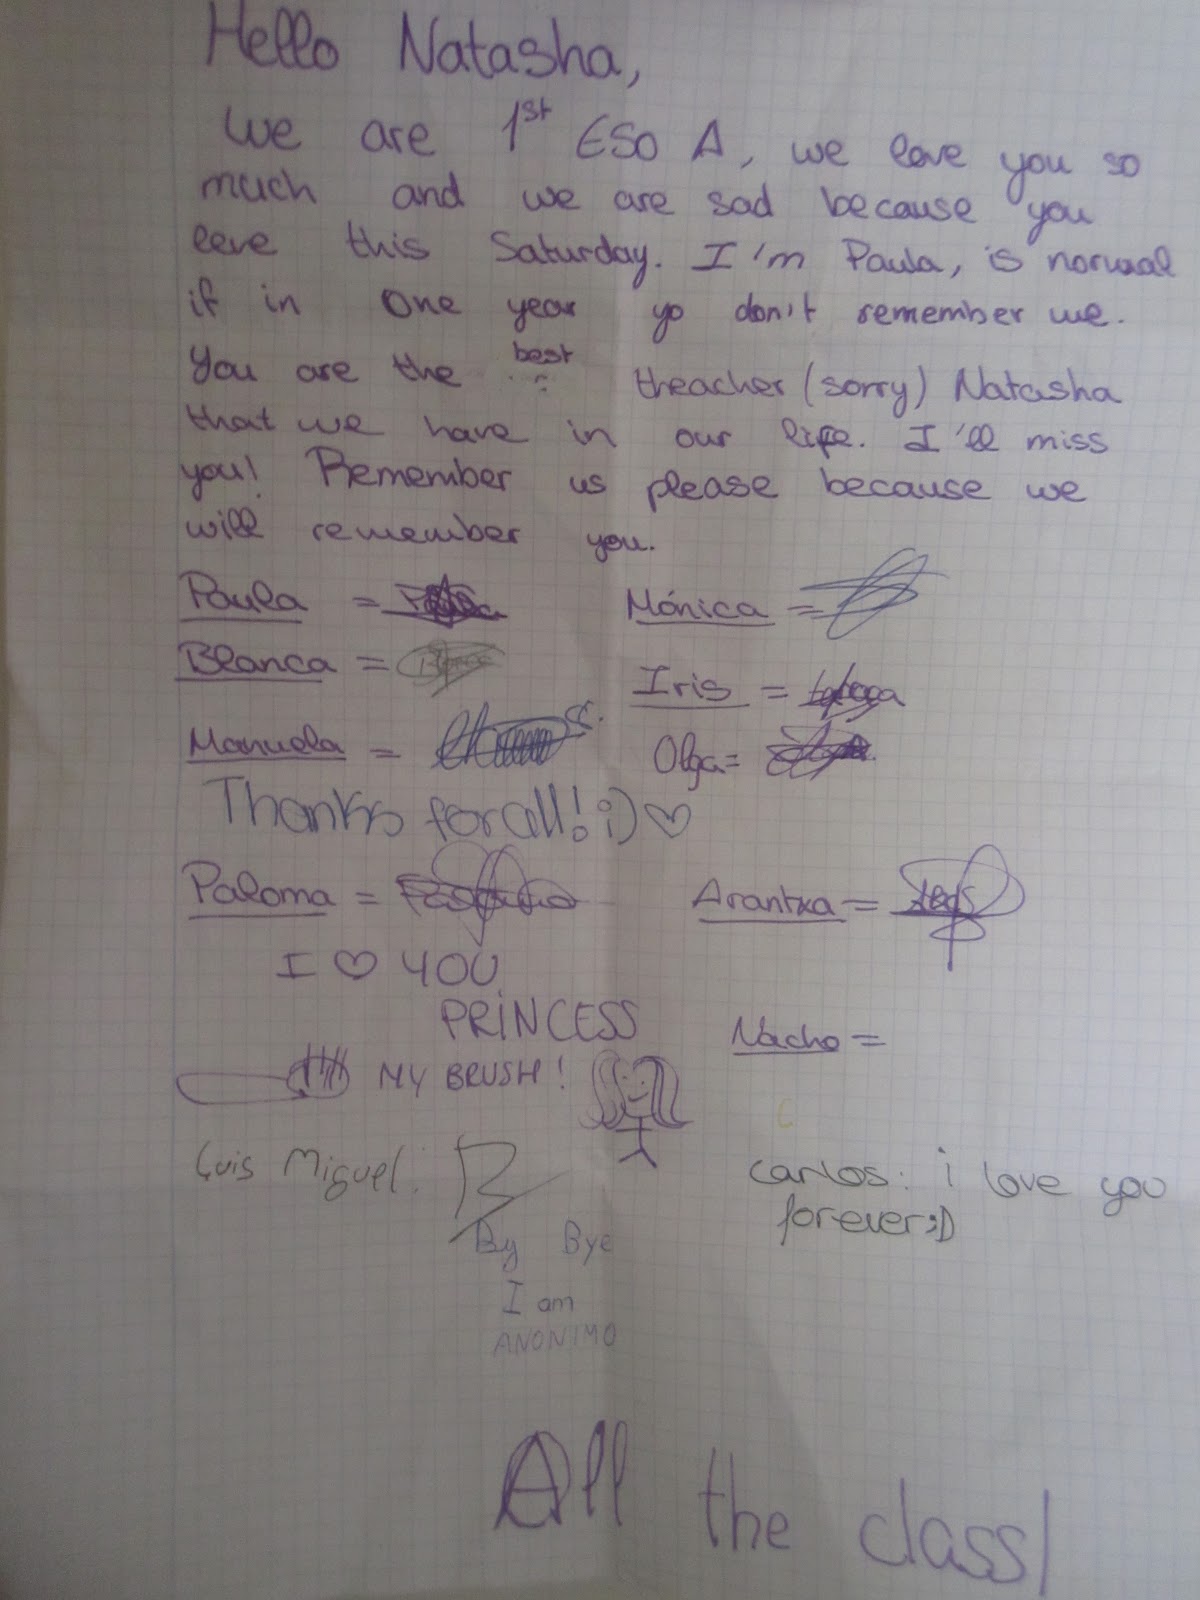 Hello Natasha,
We are 1st ESO A, we love you so
much and we are sad because you
leve this Saturday. I'm Paula, is normal
if in one year yo don't remember we.
You are the best theacher (sorry) Natasha
that we have in our life. I'll miss
you! Remember us please because we
will remember you.
Paula = Mónica =
Blanca = Iris =
Manuela = Olga =
Thanks for all! ;) ♡
Paloma = Arantxa =
I ♡ YOU
PRINCESS
Nacho =
MY BRUSH!
Luis Miguel:
Carlos: i love you
forever ;D
By Bye
I am
ANONIMO
All the class!